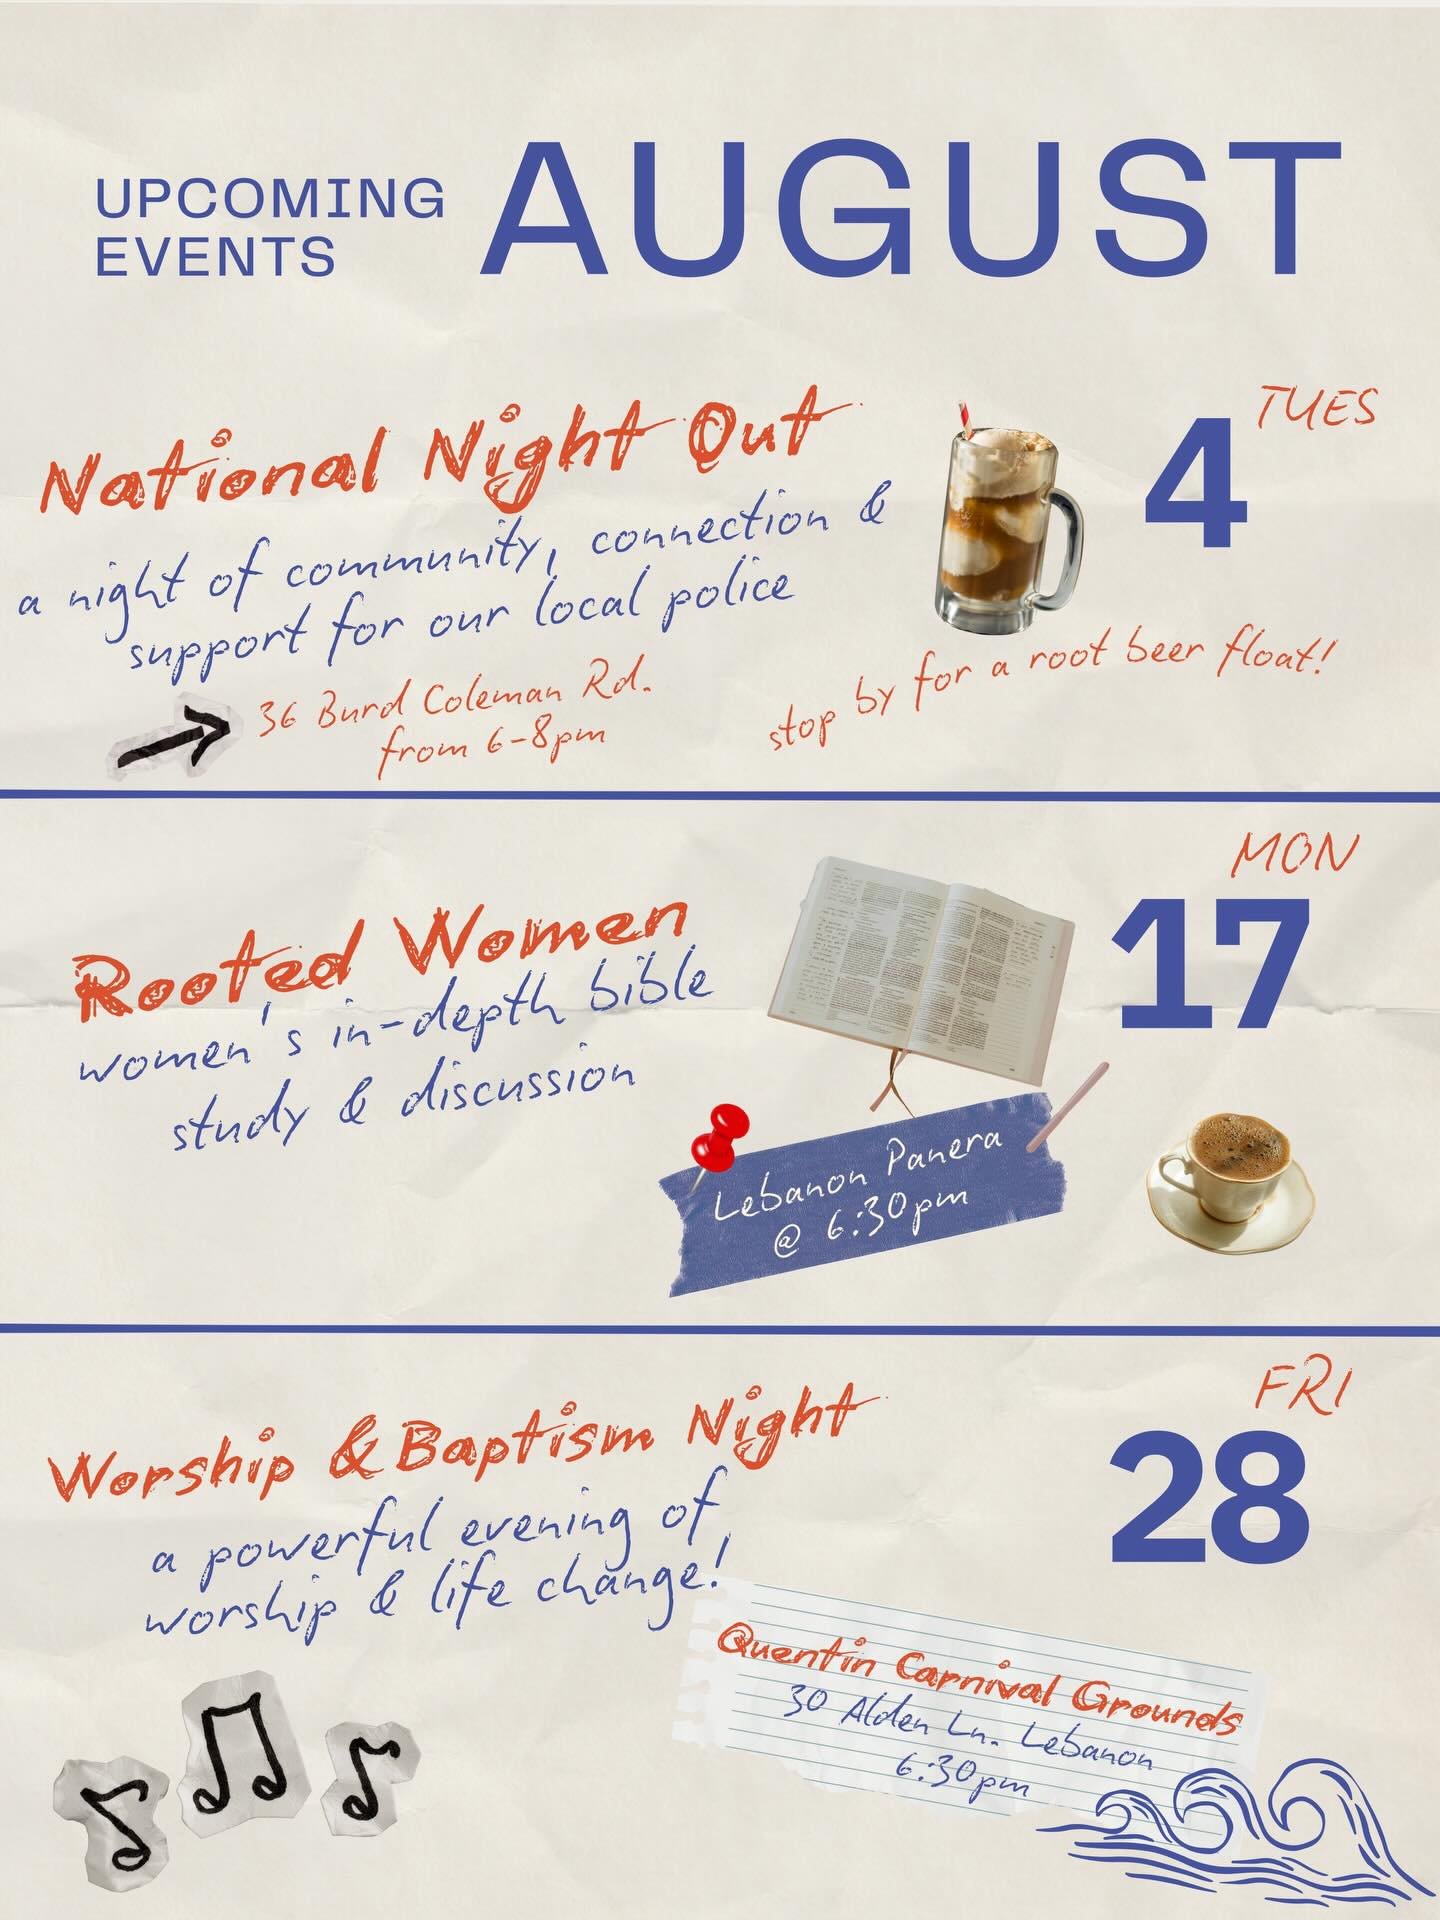 UPCOMING
EVENTS
AUGUST
National Night Out
TUES
4
a night of community, connection &
support for our local police
36 Burd Coleman Rd.
from 6-8pm
stop by for a root beer float!
MON
17
Rooted Women
women's in-depth bible
study & discussion
Lebanon Panera
@ 6:30pm
FRI
28
Worship & Baptism Night
a powerful evening of
worship & life change!
Quentin Carnival Grounds
30 Alden Ln. Lebanon
6:30pm